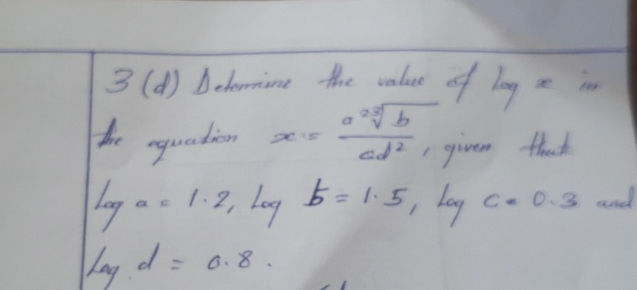 3 (d) Determine the value of log x in
the equation x = \frac{a^2 \sqrt[3]{b}}{cd^2}, given that
log a = 1.2, log b = 1.5, log c = 0.3 and
log d = 0.8.